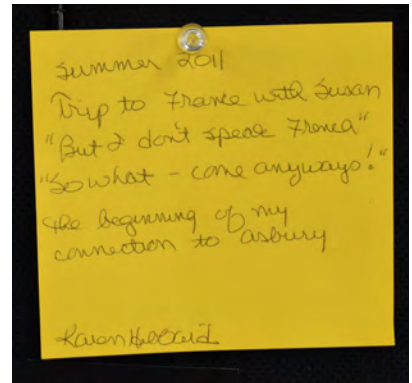 Summer 2011
Trip to France with Susan
"But I don't speak French"
"So what - come anyways!"
The beginning of my
connection to asbury
Karen Hibbard